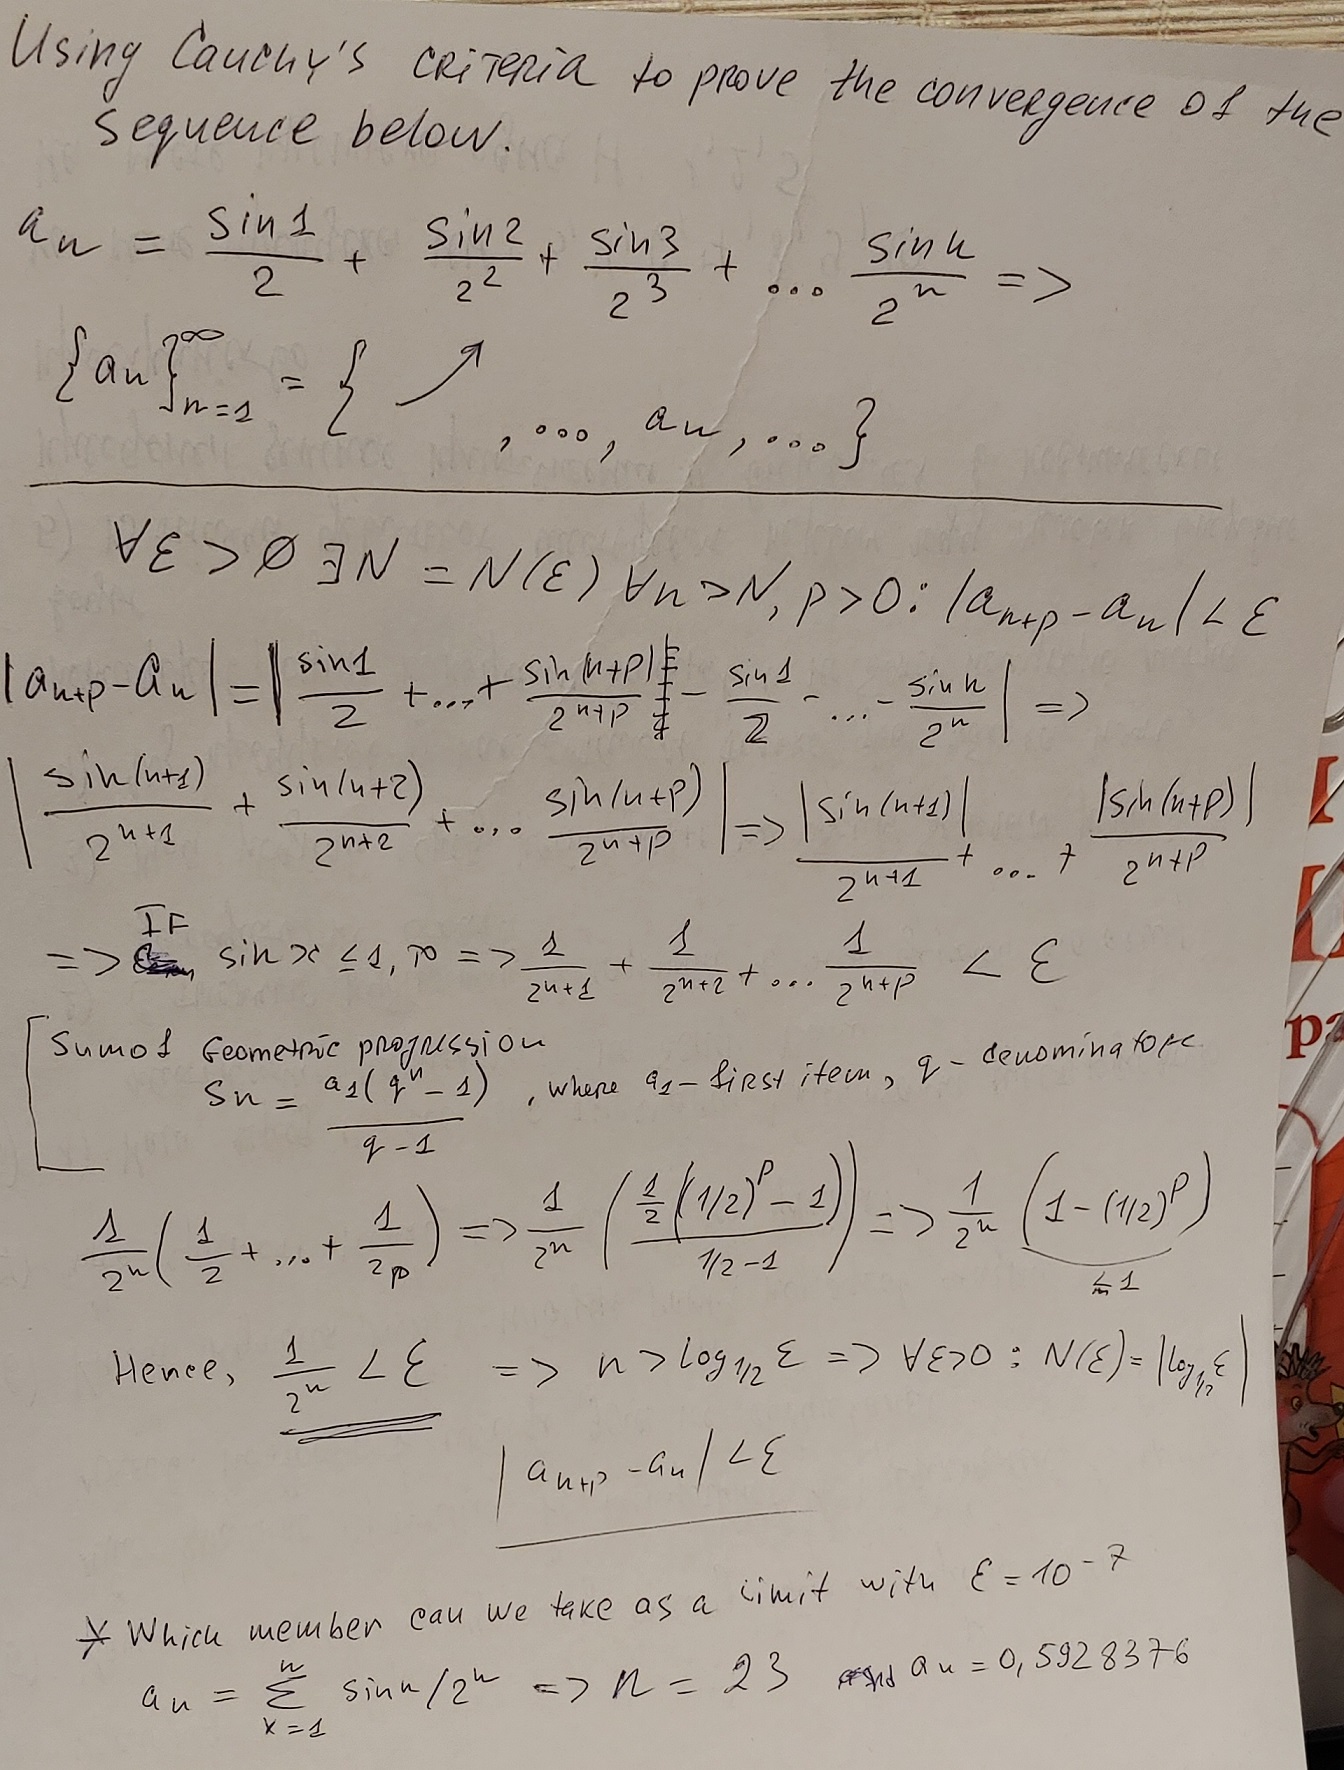 Using Cauchy's criteria to prove the convergence of the
sequence below.
aₙ = sin1/2 + sin2/2² + sin3/2³ + ... sin n/2ⁿ =>
{aₙ}ₙ₌₁^∞ = { ↗ , ..., aₙ, ... }
∀ε > 0 ∃N = N(ε) ∀n > N, p > 0: |aₙ₊ₚ - aₙ| < ε
|aₙ₊ₚ - aₙ| = |sin1/2 + ... + sin(n+p)/2ⁿ⁺ᵖ - sin1/2 - ... - sin n/2ⁿ| =>
|sin(n+1)/2ⁿ⁺¹ + sin(n+2)/2ⁿ⁺² + ... sin(n+p)/2ⁿ⁺ᵖ| => |sin(n+1)|/2ⁿ⁺¹ + ... + |sin(n+p)|/2ⁿ⁺ᵖ
=> IF sin x ≤ 1, то => 1/2ⁿ⁺¹ + 1/2ⁿ⁺² + ... 1/2ⁿ⁺ᵖ < ε
Sum of Geometric progression
Sn = a₁(qⁿ - 1)/(q - 1), where a₁ - first item, q - denominator
1/2ⁿ (1/2 + ... + 1/2p) => 1/2ⁿ (1/2((1/2)ᵖ - 1)/(1/2 - 1)) => 1/2ⁿ (1 - (1/2)ᵖ) ≤ 1
Hence, 1/2ⁿ < ε => n > log₁/₂ ε => ∀ε>0 : N(ε) = |log₁/₂ ε|
|aₙ₊ₚ - aₙ| < ε
* Which member can we take as a limit with ε = 10⁻⁷
aₙ = Σₖ₌₁ⁿ sin n/2ⁿ => n = 23 and aₙ = 0,5928376